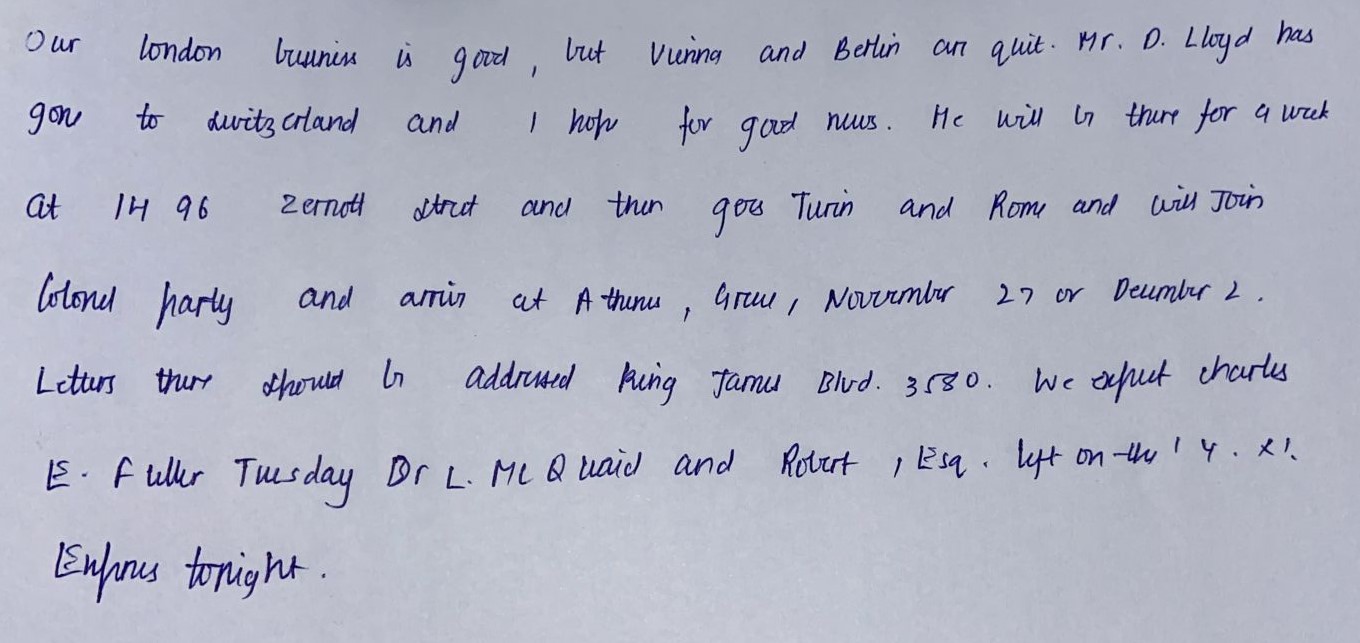 Our london business is good, but Vienna and Berlin are quit. Mr. D. Lloyd has
gone to switzerland and I hope for good news. He will be there for a week
at 1496 Zermott street and then goes Turin and Rome and will Join
Colonel party and arrive at Athenes, Greece, November 27 or December 2.
Letters there should be addressed King James Blvd. 3580. We expect charles
E. Fuller Tuesday Dr L. McQuaid and Robert, Esq. left on the '4. X!.
Express tonight.